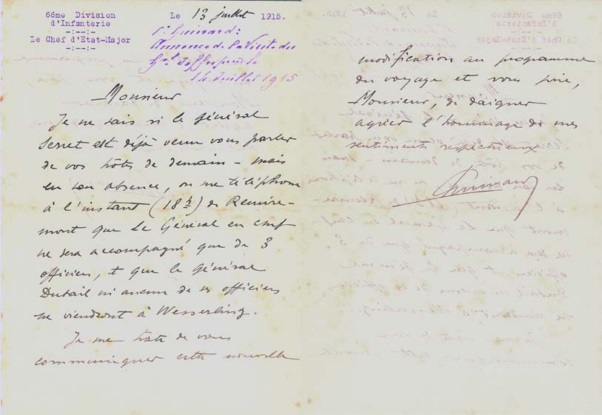 66me Division
d'Infanterie
Le Chef d'Etat-Major
Le 13 juillet 1915.
Ct Guimard:
Annonce de la visite du
Gal Joffre pour le
14 juillet 1915
Monsieur
Je ne sais si le général
Serret est déjà venu vous parler
de vos hôtes de demain - mais
en son absence, on me téléphone
à l'instant (18h) de Remire-
mont que le Général en chef
ne sera accompagné que de 3
officiers, et que le général
Dubail ni aucun de ses officiers
ne viendront à Wesserling.
Je me hâte de vous
communiquer cette nouvelle
modification au programme
du voyage et vous prie,
Monsieur, de daigner
agréer l'hommage de mes
sentiments respectueux